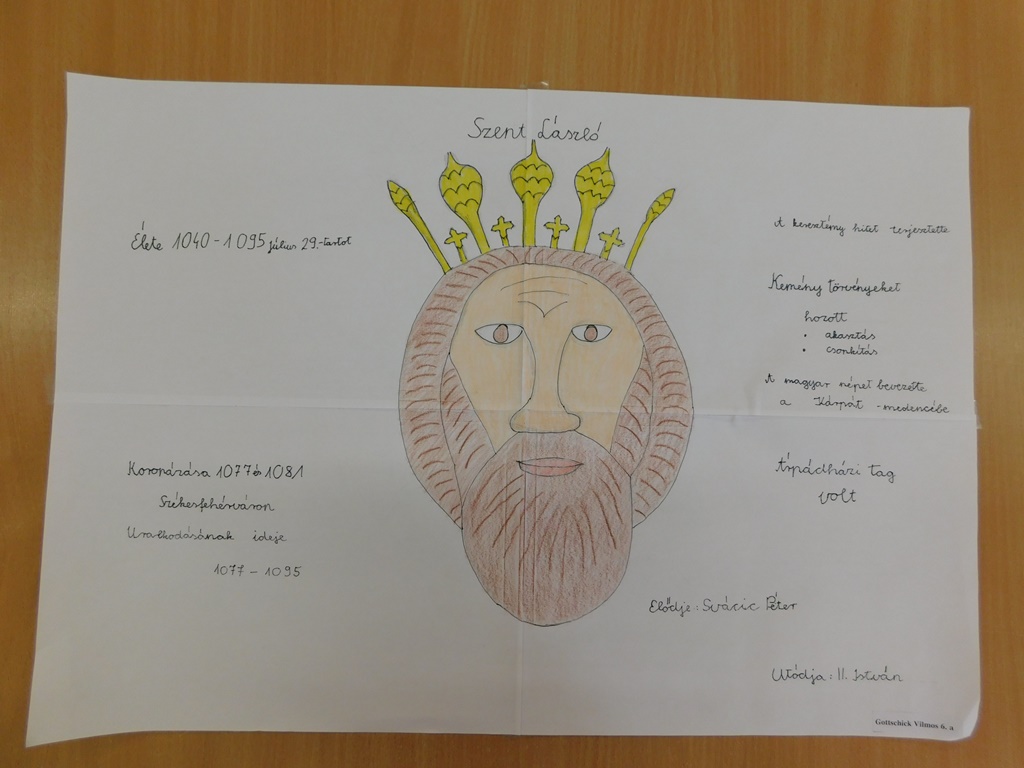 Szent László
Élete 1040-1095 július 29.-tartot
Koronázása 1077 és 1081
Székesfehérváron
Uralkodásának ideje
1077 – 1095
A keresztény hitet terjesztette
Kemény törvényeket
hozott
• akasztás
• csonkítás
A magyar népet bevezette
a Kárpát -medencébe
Árpádházi tag
volt
Elődje: Svácic Péter
Utódja: II. István
Gottschick Vilmos 6. a